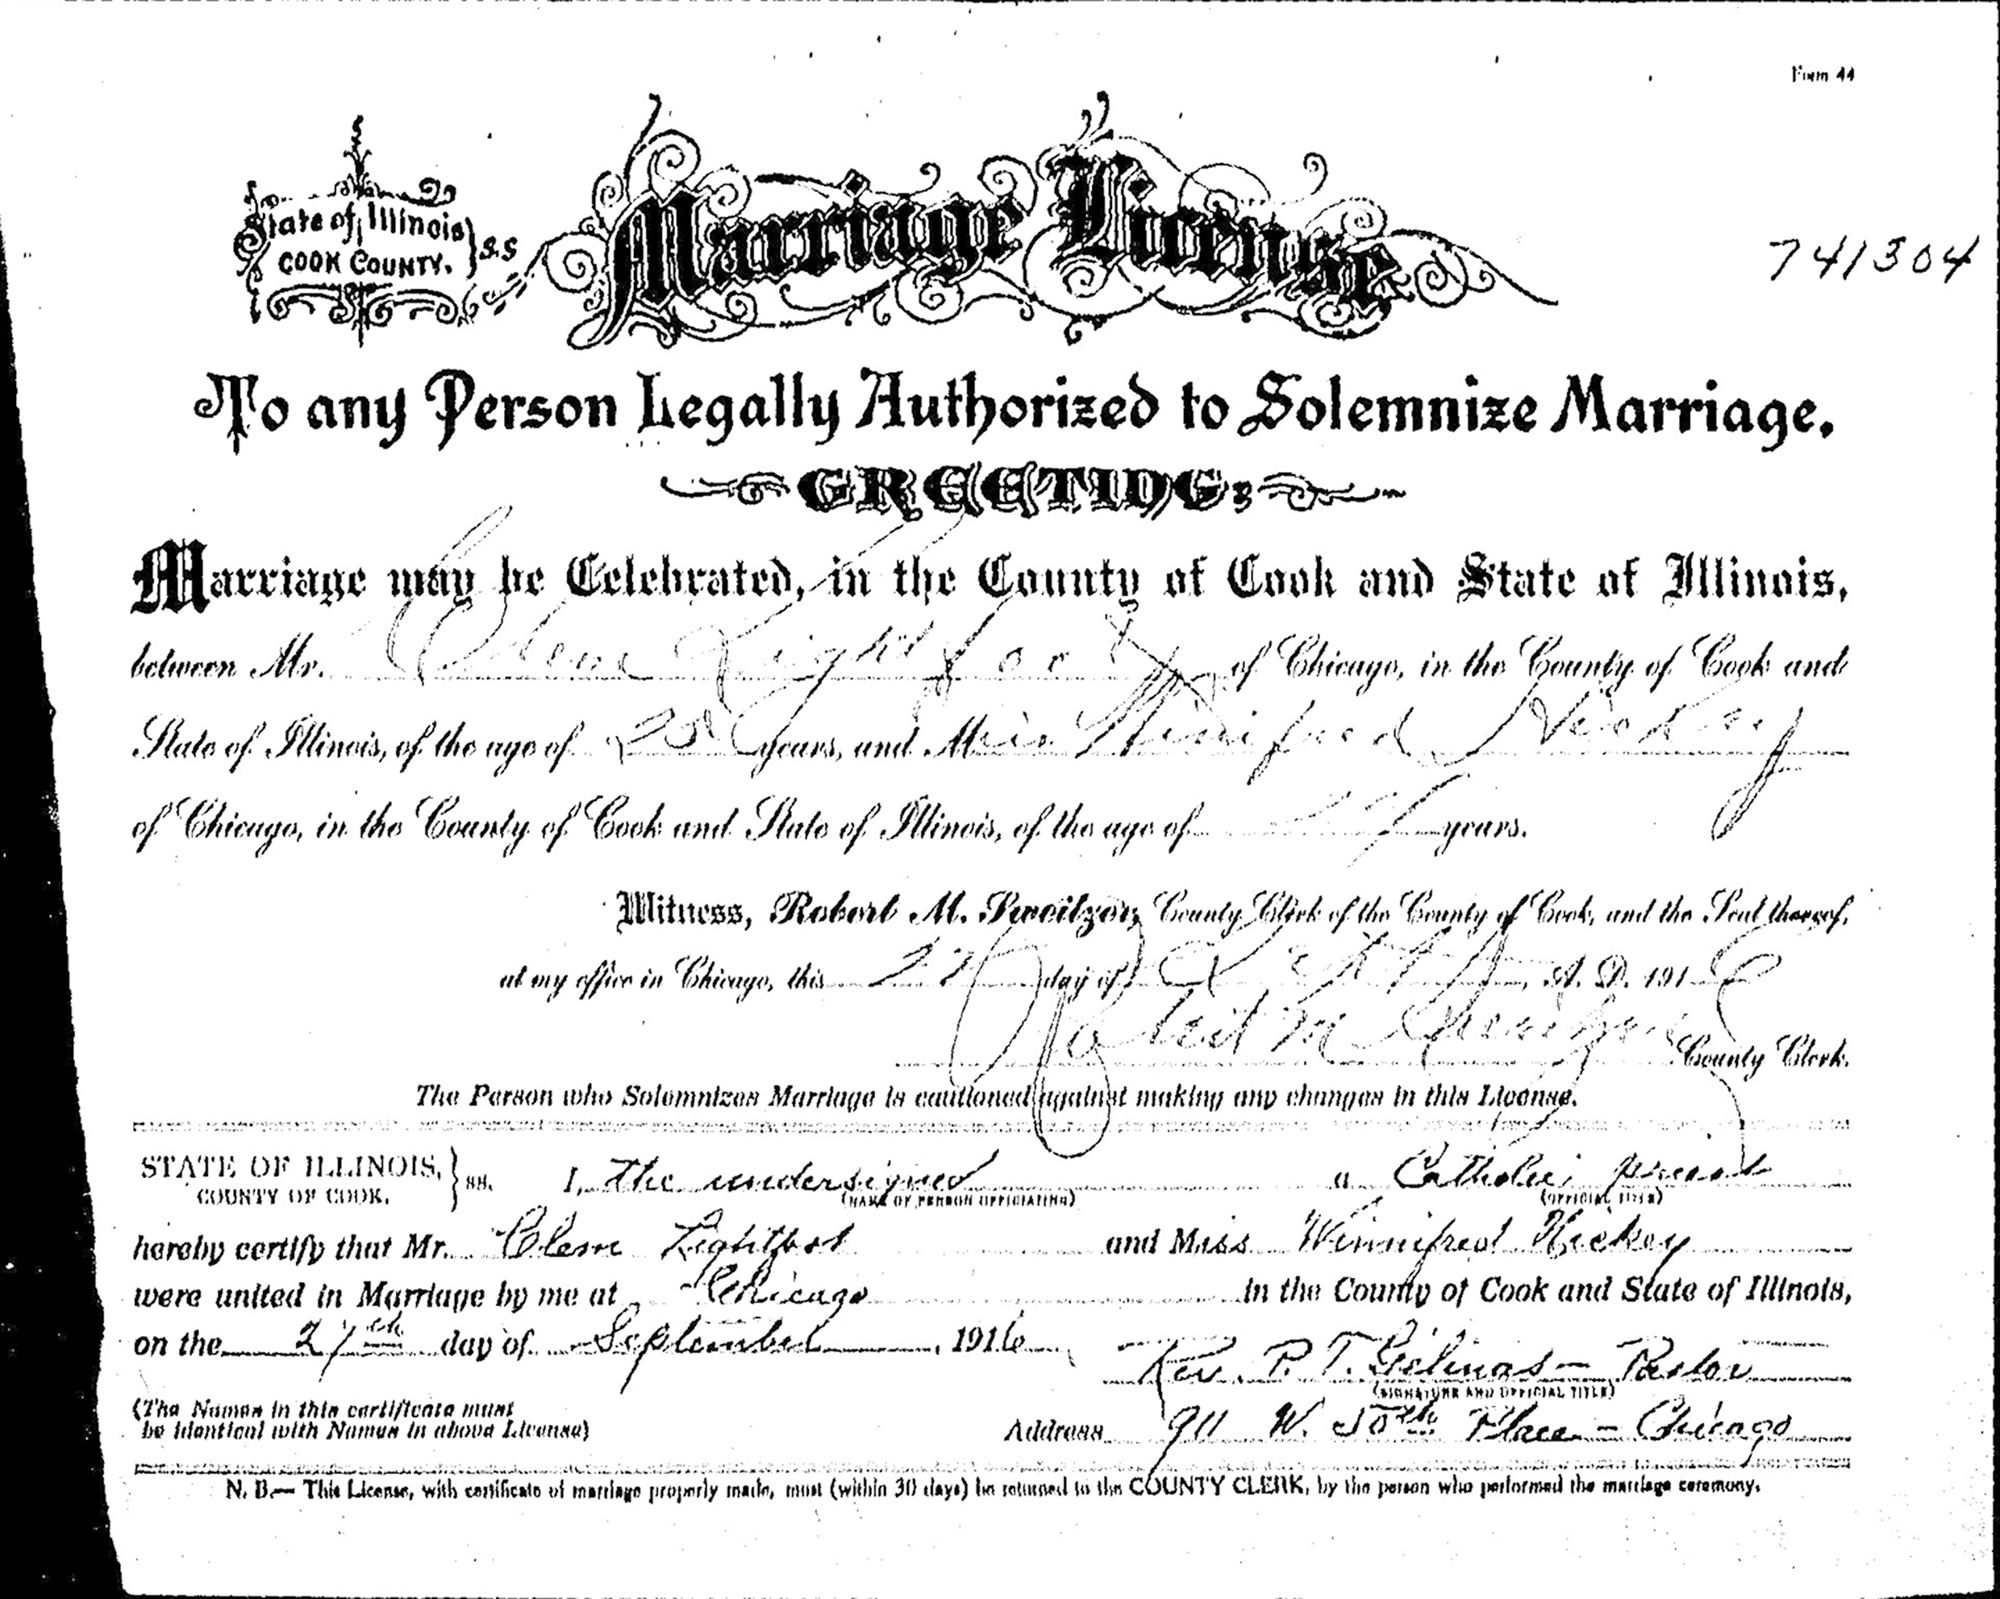 Form 44
State of Illinois
COOK COUNTY. } S.S
Marriage License
741304
To any Person Legally Authorized to Solemnize Marriage.
GREETING:
Marriage may be Celebrated, in the County of Cook and State of Illinois,
between Mr. Clem Lightfoot of Chicago, in the County of Cook and
State of Illinois, of the age of 25 years, and Miss Winifred Hickey
of Chicago, in the County of Cook and State of Illinois, of the age of years.
Witness, Robert M. Sweitzer, County Clerk of the County of Cook, and the Seal thereof,
at my office in Chicago, this 27 day of Sept A. D. 1916
Robert M Sweitzer County Clerk.
The Person who Solemnizes Marriage is cautioned against making any changes in this License.
STATE OF ILLINOIS,
COUNTY OF COOK. } ss. I, the undersigned a Catholic priest
(NAME OF PERSON OFFICIATING) (OFFICIAL TITLE)
hereby certify that Mr. Clem Lightfoot and Miss Winnifred Hickey
were united in Marriage by me at Chicago in the County of Cook and State of Illinois,
on the 27th day of September, 1916
Rev. P. T. Gelinas - Pastor
(SIGNATURE AND OFFICIAL TITLE)
(The Names in this certificate must
be identical with Names in above License)
Address 911 W. 50th Place - Chicago
N. B.— This License, with certificate of marriage properly made, must (within 30 days) be returned to the COUNTY CLERK, by the person who performed the marriage ceremony.